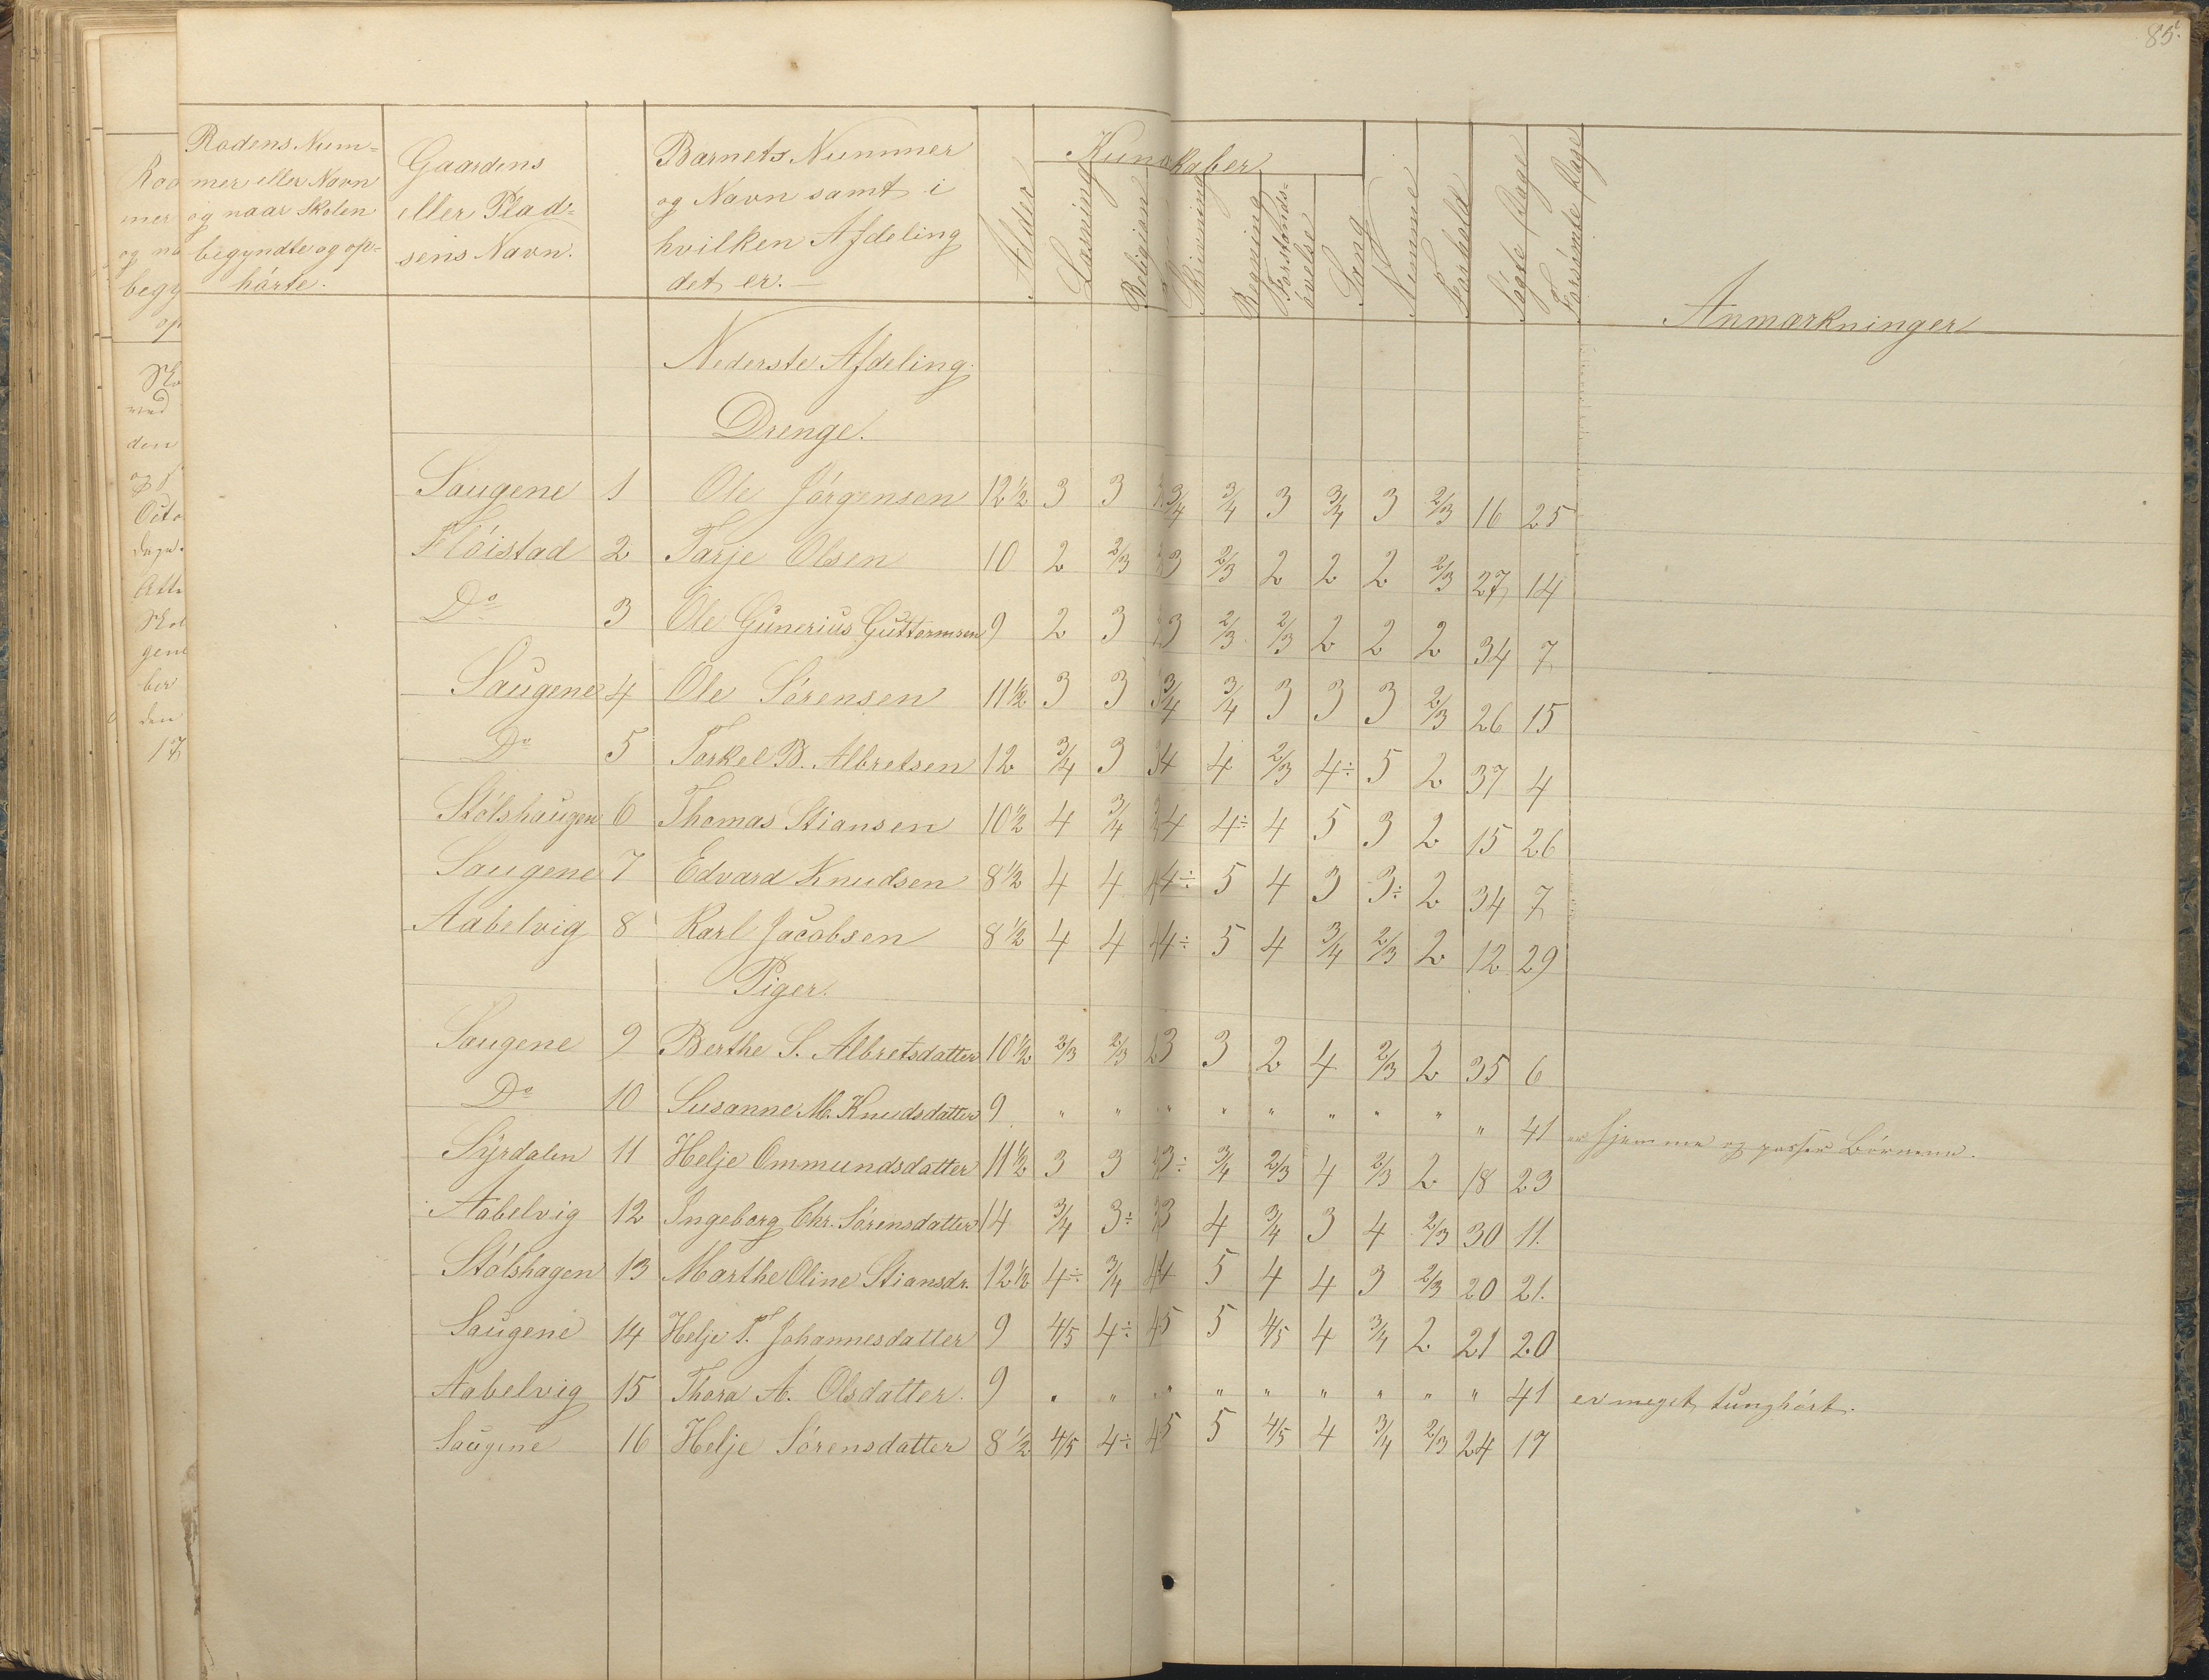 85
Rodens Num=
mer eller Navn
og naar Skolen
begyndte og op=
hörte.
Gaardens
eller Plad=
sens Navn.
Barnets Nummer
og Navn samt i
hvilken Afdeling
det er. —
Alder
Kundskaber
Læsning
Religion
Skrivning
Regning
Forstands=
övelse
Sang
Nummer
Forhold
Sögte Dage
Forsömte Dage
Anmærkninger
Nederste Afdeling.
Drenge.
Saugene 1 Ole Jörgensen 12½ 3 3 3/4 3/4 3 3/4 3 2/3 16 25
Flöistad 2 Tarje Olsen 10 2 2/3 3 2/3 2 2 2 2/3 27 14
Do 3 Ole Gunerius Guttormsen 9 2 3 3 2/3 2/3 2 2 2 34 7
Saugene 4 Ole Sörensen 11½ 3 3 3/4 3/4 3 3 3 2/3 26 15
Do 5 Torkel B. Albretsen 12 3/4 3 4 4 2/3 4÷ 5 2 37 4
Stölshaugen 6 Thomas Stiansen 10½ 4 3/4 4 4÷ 4 5 3 2 15 26
Saugene 7 Edvard Knudsen 8½ 4 4 4÷ 5 4 3 3÷ 2 34 7
Aabelvig 8 Karl Jacobsen 8½ 4 4 4÷ 5 4 3/4 2/3 2 12 29
Piger.
Saugene 9 Berthe S. Albretsdatter 10½ 2/3 2/3 3 3 2 4 2/3 2 35 6
Do 10 Susanne M. Knudsdatter 9 " " " " " " " " " 41 er hjemme og passer Börnene.
Syrdalen 11 Helje Ommundsdatter 11½ 3 3 3÷ 3/4 2/3 4 2/3 2 18 23
Aabelvig 12 Ingeborg Chr. Sörensdatter 14 3/4 3÷ 3 4 3/4 3 4 2/3 30 11.
Stölshagen 13 Marthe Oline Stiansdr. 12½ 4÷ 3/4 4 5 4 4 3 2/3 20 21.
Saugene 14 Helje T. Johannesdatter 9 4/5 4÷ 5 5 4/5 4 3/4 2 21 20
Aabelvig 15 Thora A. Olsdatter. 9 " " " " " " " " " 41 er meget tunghört.
Saugene 16 Helje Sörensdatter 8½ 4/5 4÷ 5 5 4/5 4 3/4 2/3 24 17